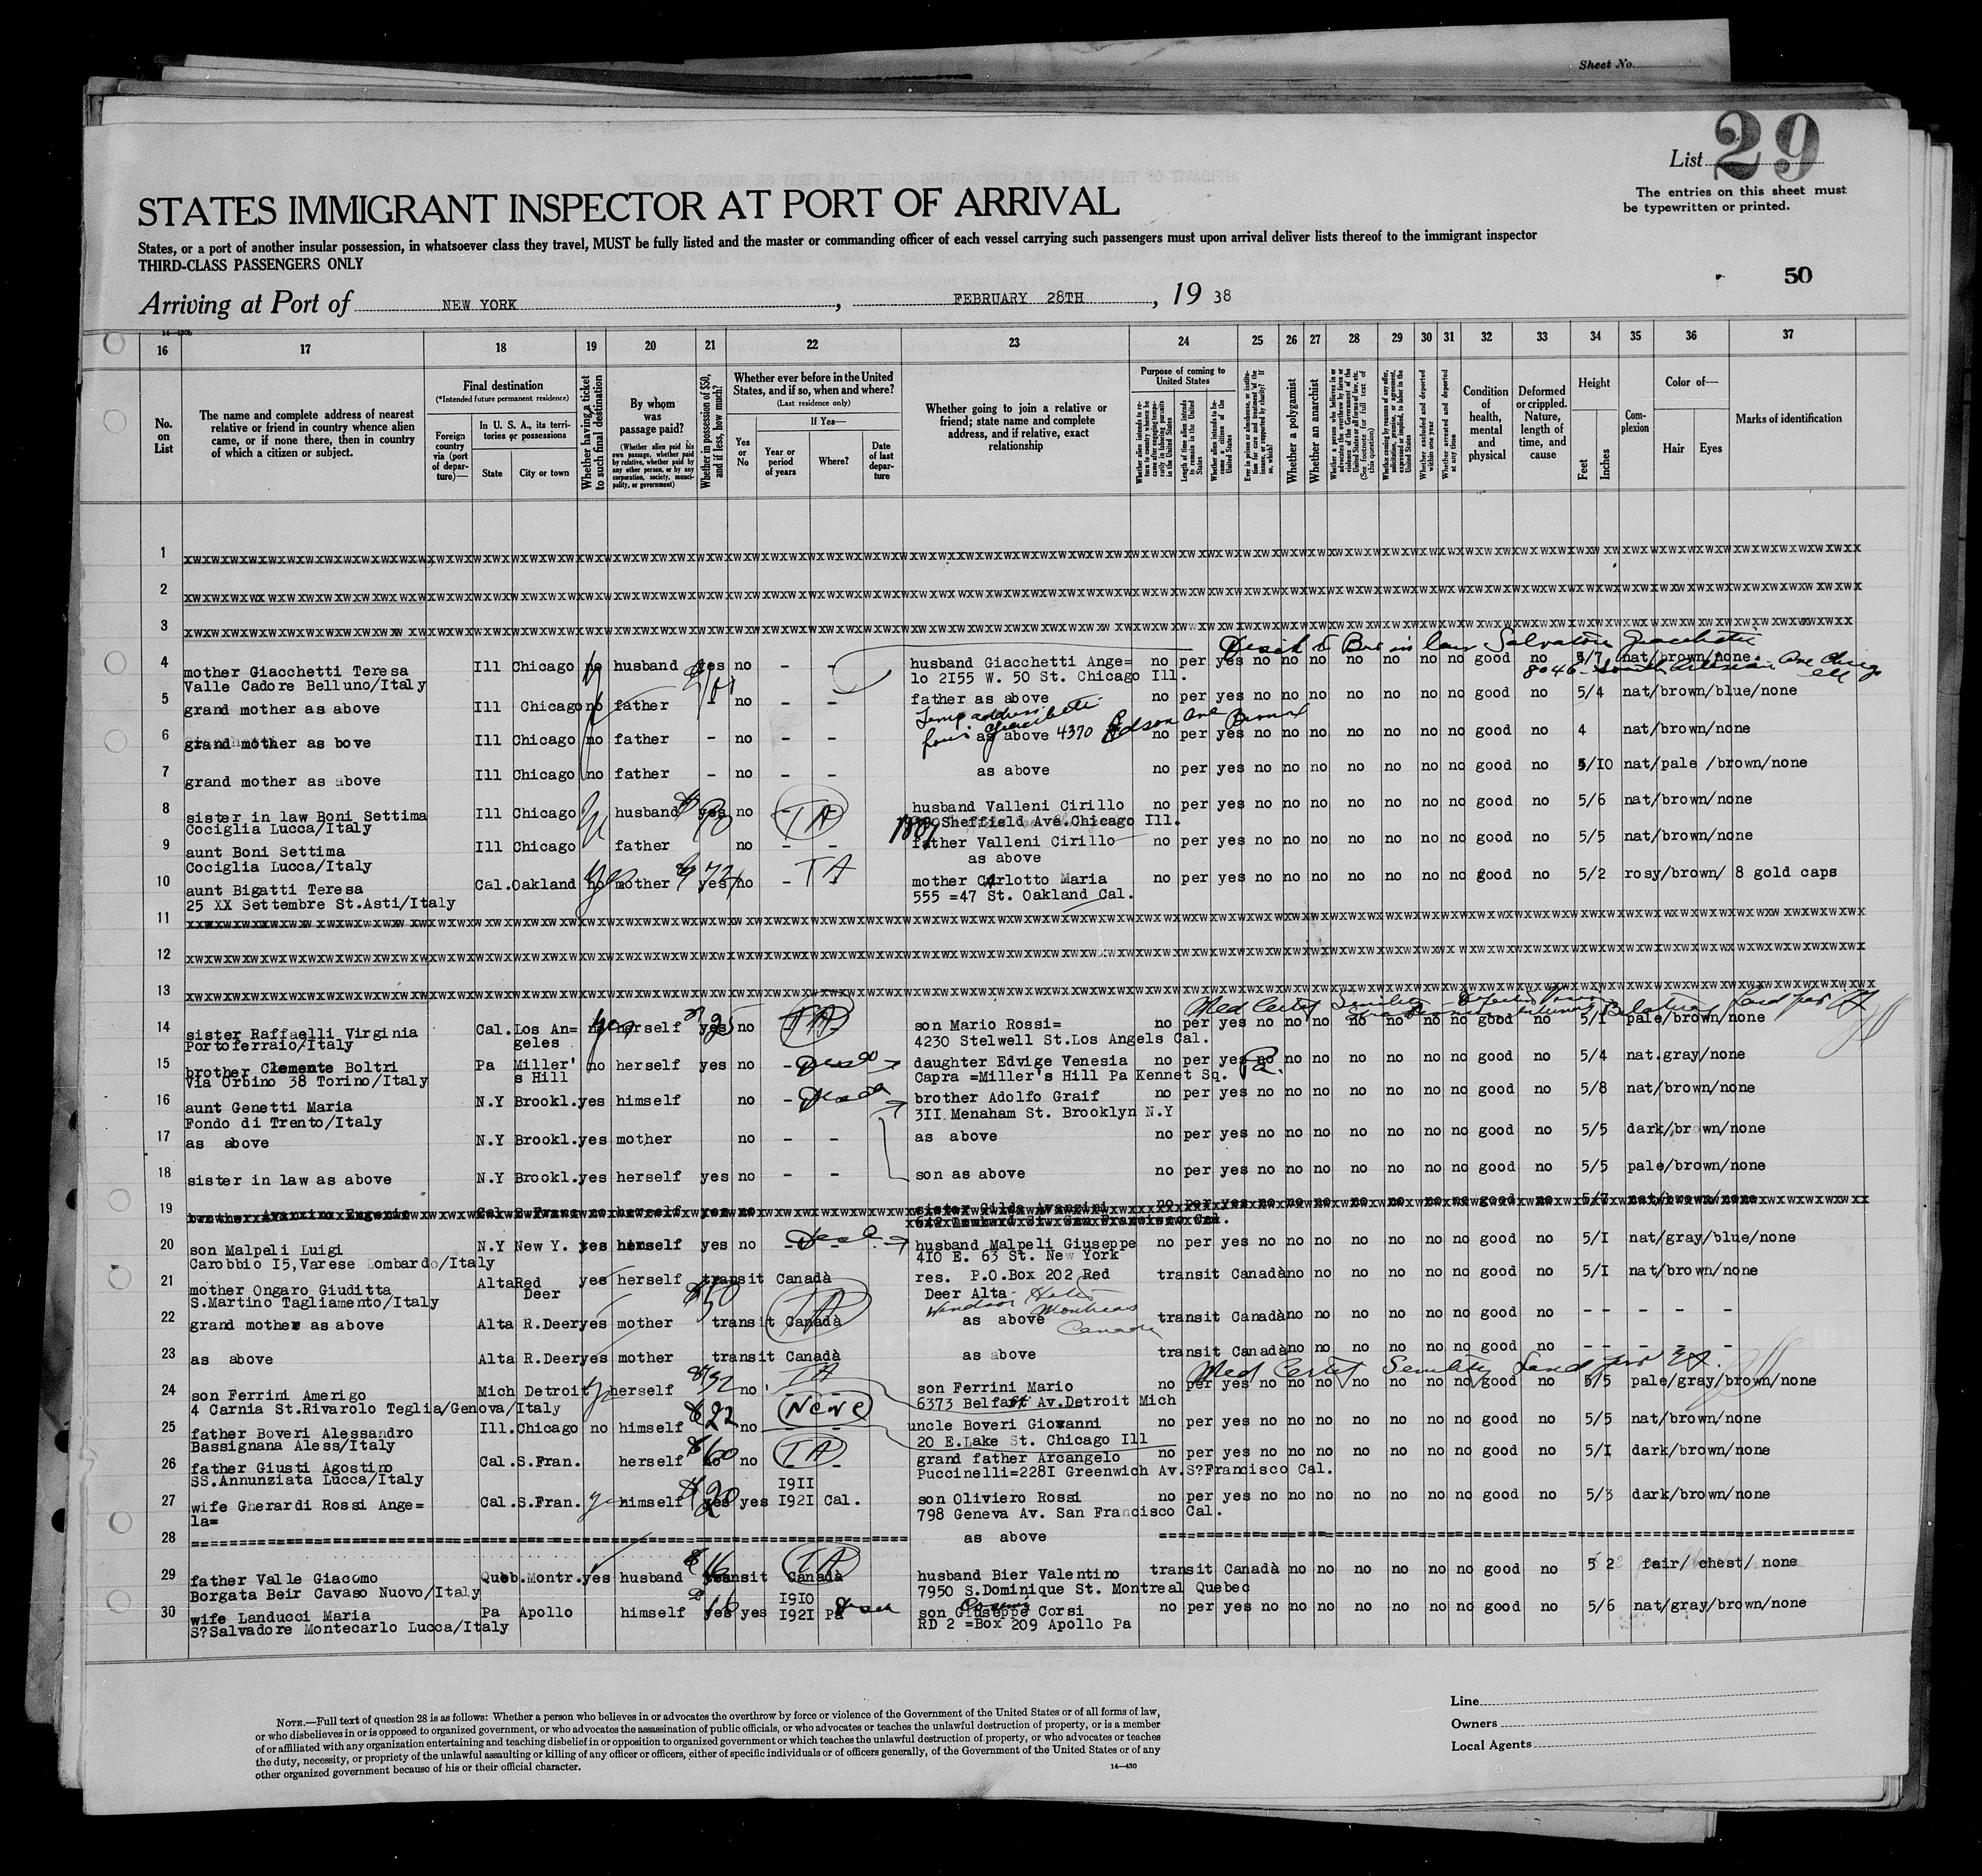 Sheet No.
List 29
The entries on this sheet must
be typewritten or printed.
STATES IMMIGRANT INSPECTOR AT PORT OF ARRIVAL
States, or a port of another insular possession, in whatsoever class they travel, MUST be fully listed and the master or commanding officer of each vessel carrying such passengers must upon arrival deliver lists thereof to the immigrant inspector
THIRD-CLASS PASSENGERS ONLY
50
Arriving at Port of NEW YORK , FEBRUARY 28TH , 19 38
14—430b
16 17 18 19 20 21 22 23 24 25 26 27 28 29 30 31 32 33 34 35 36 37
No. on List
The name and complete address of nearest relative or friend in country whence alien came, or if none there, then in country of which a citizen or subject.
Final destination
(*Intended future permanent residence)
Foreign country via (port of departure)—
In U. S. A., its territories or possessions
State
City or town
Whether having a ticket to such final destination
By whom was passage paid?
(Whether alien paid his own passage, whether paid by relative, whether paid by any other person, or by any corporation, society, municipality, or government)
Whether in possession of $50, and if less, how much?
Whether ever before in the United States, and if so, when and where?
(Last residence only)
Yes or No
If Yes—
Year or period of years
Where?
Date of last departure
Whether going to join a relative or friend; state name and complete address, and if relative, exact relationship
Purpose of coming to United States
Whether alien intends to return to country whence he came after engaging temporarily in laboring pursuits in the United States
Length of time alien intends to remain in the United States
Whether alien intends to become a citizen of the United States
Ever in prison or almshouse, or institution for care and treatment of the insane, or supported by charity? If so, which?
Whether a polygamist
Whether an anarchist
Whether a person who believes in or advocates the overthrow by force or violence of the Government of the United States or all forms of law, etc. (See footnote for full text of this question)
Whether coming by reason of any offer, solicitation, promise, or agreement, expressed or implied, to labor in the United States
Whether excluded and deported within one year
Whether arrested and deported at any time
Condition of health, mental and physical
Deformed or crippled. Nature, length of time, and cause
Height
Feet
Inches
Complexion
Color of—
Hair
Eyes
Marks of identification
1
2
3
Salvatore Giacchetti
4 mother Giacchetti Teresa Ill Chicago no husband yes no - - husband Giacchetti Ange= no per yes no no no no no no no good no 5/7 nat/brown/none
Valle Cadore Belluno/Italy lo 2155 W. 50 St. Chicago Ill. 8046
5 grand mother as above Ill Chicago no father - no - - father as above no per yes no no no no no no no good no 5/4 nat/brown/blue/none
Temp. address
6 grand mother as bove Ill Chicago no father - no - - as above 4370 Edson Ave Bronx no per yes no no no no no no no good no 4 nat/brown/none
7 grand mother as above Ill Chicago no father - no - - as above no per yes no no no no no no no good no 5/10 nat/pale /brown/none
8 sister in law Boni Settima Ill Chicago husband yes no TA husband Valleni Cirillo no per yes no no no no no no no good no 5/6 nat/brown/none
Cociglia Lucca/Italy 1809 Sheffield Ave.Chicago Ill.
9 aunt Boni Settima Ill Chicago father no - - father Valleni Cirillo no per yes no no no no no no no good no 5/5 nat/brown/none
Cociglia Lucca/Italy as above
10 aunt Bigatti Teresa Cal. Oakland no mother yes no - TA mother Carlotto Maria no per yes no no no no no no no good no 5/2 rosy/brown/ 8 gold caps
25 XX Settembre St.Asti/Italy 555 =47 St. Oakland Cal.
11
12
13
Med Certif Senility
14 sister Raffaelli Virginia Cal. Los An= herself yes no TA son Mario Rossi= no per yes no no no no no no no good no 5/1 pale/brown/none
Portoferraio/Italy geles 4230 Stelwell St.Los Angels Cal.
15 brother Clemente Boltri Pa Miller' no herself yes no - daughter Edvige Venesia no per yes no no no no no no no good no 5/4 nat.gray/none
Via Orbino 38 Torino/Italy s Hill Capra =Miller's Hill Pa Kennet Sq. Pa.
16 aunt Genetti Maria N.Y Brookl. yes himself no - brother Adolfo Graif no per yes no no no no no no no good no 5/8 nat/brown/none
Fondo di Trento/Italy 311 Menaham St. Brooklyn N.Y
17 as above N.Y Brookl. yes mother no - - as above no per yes no no no no no no no good no 5/5 dark/brown/none
18 sister in law as above N.Y Brookl. yes herself yes no - - son as above no per yes no no no no no no no good no 5/5 pale/brown/none
19 brother Avanzino Eugenio Cal S.Franc no herself yes no sister Gilda Avanzini no per yes no no no no no no no good no 5/7 nat/brown/none
20 son Malpeli Luigi N.Y New Y. yes himself yes no - - husband Malpeli Giuseppe no per yes no no no no no no no good no 5/1 nat/gray/blue/none
Carobbio 15,Varese Lombardo/Italy 410 E. 63 St. New York
21 mother Ongaro Giuditta Alta Red yes herself transit Canadà res. P.O.Box 202 Red transit Canadà no no no no no no good no 5/1 nat/brown/none
S.Martino Tagliamento/Italy Deer $50 Deer Alta
Windsor Hotel Montreal Canada
22 grand mother as above Alta R.Deer yes mother transit Canadà TA as above transit Canadà no no no no no no good no - - - - -
23 as above Alta R.Deer yes mother transit Canadà as above transit Canadà no no no no no no good no - - - - -
Med Certif Senility Land
24 son Ferrini Amerigo Mich Detroit herself $32 no TA son Ferrini Mario no per yes no no no no no no no good no 5/5 pale/gray/brown/none
4 Carnia St.Rivarolo Teglia/Genova/Italy 6373 Belfast Av.Detroit Mich
25 father Boveri Alessandro Ill. Chicago no himself $22 no uncle Boveri Giovanni no per yes no no no no no no no good no 5/5 nat/brown/none
Bassignana Aless/Italy 20 E.Lake St. Chicago Ill
26 father Giusti Agostino Cal. S.Fran. herself $60 no TA grand father Arcangelo no per yes no no no no no no no good no 5/1 dark/brown/none
SS.Annunziata Lucca/Italy Puccinelli=2281 Greenwich Av.S?Francisco Cal.
27 wife Gherardi Rossi Ange= Cal. S.Fran. himself $20 yes 1911 1921 Cal. son Oliviero Rossi no per yes no no no no no no no good no 5/3 dark/brown/none
la= 798 Geneva Av. San Francisco Cal.
28 as above
29 father Valle Giacomo Queb. Montr. yes husband transit Canadà TA husband Bier Valentino transit Canadà no no no no no no good no 5 2 fair/ chest/ none
Borgata Beir Cavaso Nuovo/Italy 7950 S.Dominique St. Montreal Quebec
30 wife Landucci Maria Pa Apollo himself yes yes 1910 1921 Pa son Giuseppe Corsi no per yes no no no no no no no good no 5/6 nat/gray/brown/none
S?Salvadore Montecarlo Lucca/Italy RD 2 =Box 209 Apollo Pa
NOTE.—Full text of question 28 is as follows: Whether a person who believes in or advocates the overthrow by force or violence of the Government of the United States or of all forms of law,
or who disbelieves in or is opposed to organized government, or who advocates the assassination of public officials, or who advocates or teaches the unlawful destruction of property, or is a member
of or affiliated with any organization entertaining and teaching disbelief in or opposition to organized government or which teaches the unlawful destruction of property, or who advocates or teaches
the duty, necessity, or propriety of the unlawful assaulting or killing of any officer or officers, either of specific individuals or of officers generally, of the Government of the United States or of any
other organized government because of his or their official character.
14—430
Line
Owners
Local Agents